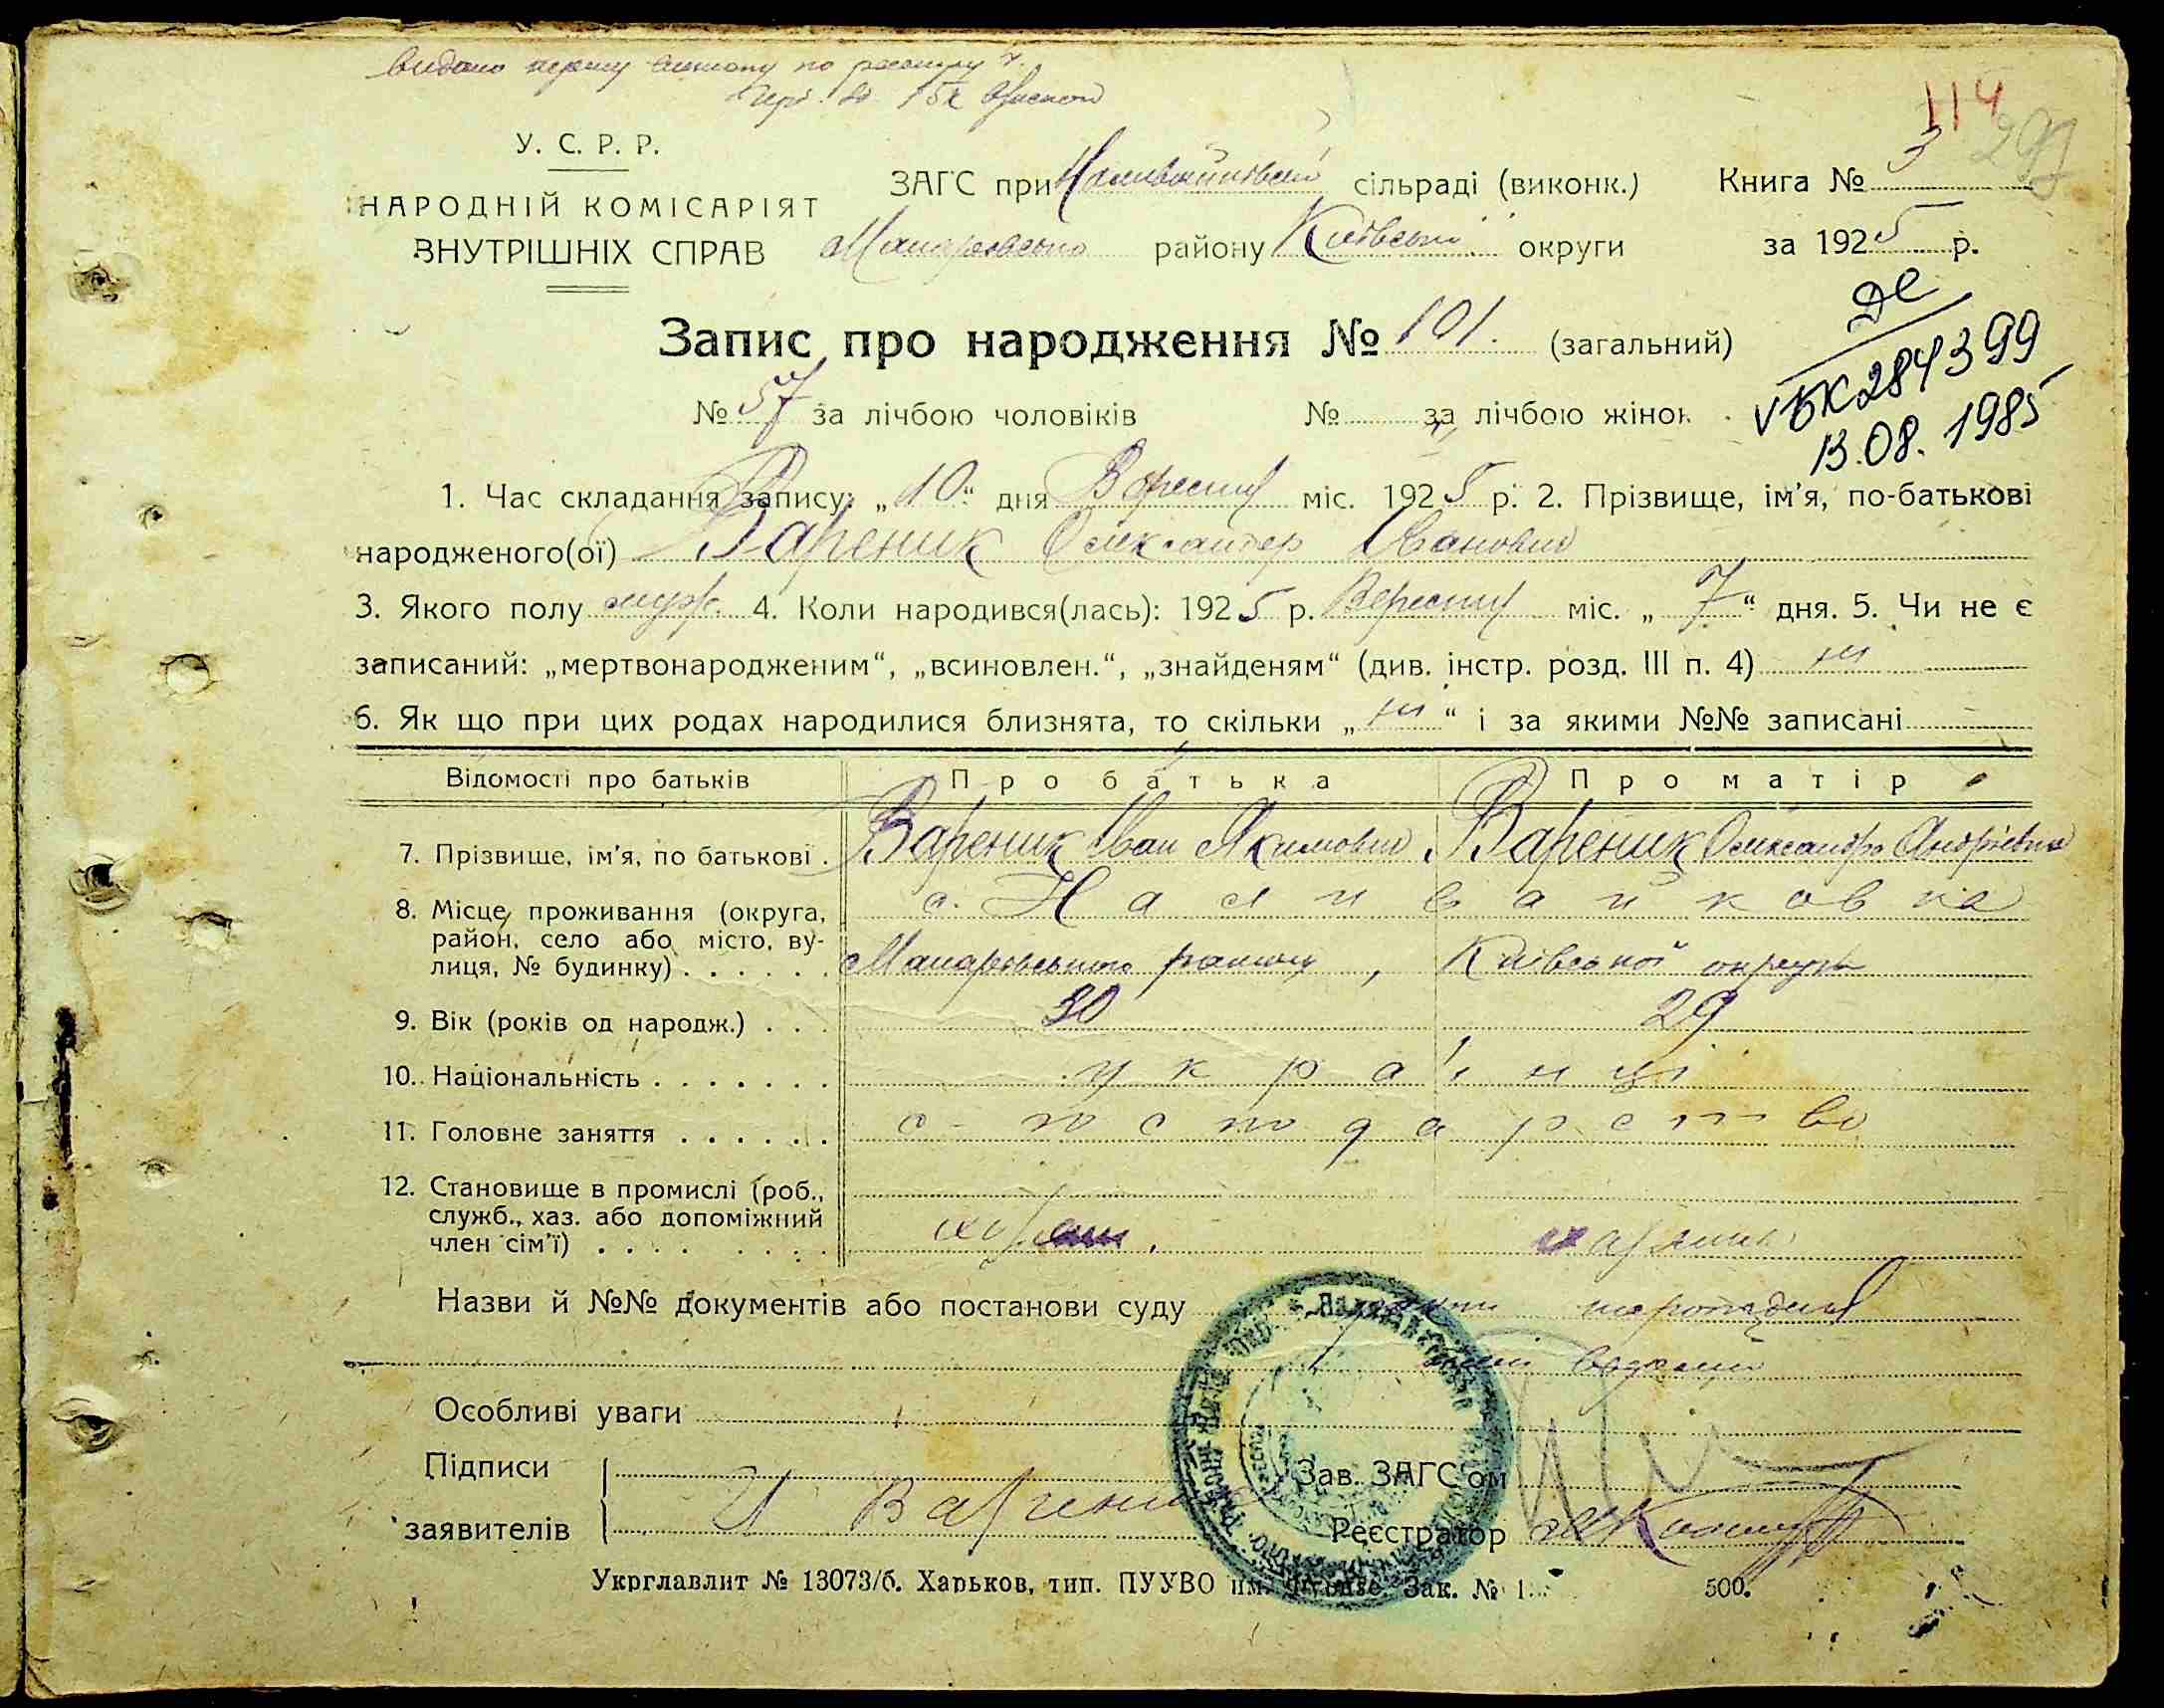 видано першу виписку по
114
У. С. Р. Р.
ЗАГС при Наливайківській сільраді (виконк.) Книга № 3
НАРОДНІЙ КОМІСАРІЯТ
ВНУТРІШНІХ СПРАВ Макарівського району Київської округи за 1925 р.
ДС
Запис про народження № 101. (загальний)
VБК 284399
№ 57 за лічбою чоловіків № за лічбою жінок
13.08.1985
1. Час складання запису: „10“ дня Вересня міс. 1925 р. 2. Прізвище, ім’я, по-батькові
народженого(ої) Вареник Олександер Іванович
3. Якого полу муж. 4. Коли народився(лась): 1925 р. Вересня міс. „7“ дня. 5. Чи не є
записаний: „мертвонародженим“, „всиновлен.“, „знайденям“ (див. інстр. розд. III п. 4) ні
6. Як що при цих родах народилися близнята, то скільки „ні“ і за якими №№ записані
Відомості про батьків Про батька Про матір
7. Прізвище, ім’я, по батькові . Вареник Іван Якимович Вареник Олександра Андріевна
8. Місце проживання (округа, с. Наливайковка
район, село або місто, ву-
лиця, № будинку) . . . . . . Макарівського району, Київської округи
9. Вік (років од народж.) . . . 30 29
10. Національність . . . . . . . українці
11. Головне заняття . . . . . . с-господарство
12. Становище в промислі (роб.,
служб., хаз. або допоміжний
член сім’ї) . . . . . . . .
Назви й №№ документів або постанови суду
Особливі уваги
Підписи
Зав. ЗАГС’ом
заявителів И Вареник Реєстратор
Укрглавлит № 13073/б. Харьков, тип. ПУУВО им. Фрунзе. Зак. № 1 500.